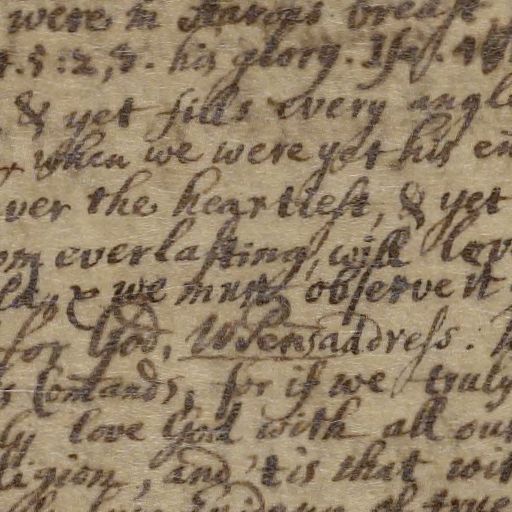 were in Aarons breast
5:2,8. his glory. Isa. 4
& yet fills every angle
when we were yet his en
ver the heartiest, & yet
om everlasting, will lov
& we must observe it
for God, Wsens address:
s Comands, for if we truly
ly love God with all our
ligion, and 'tis that wit
of true